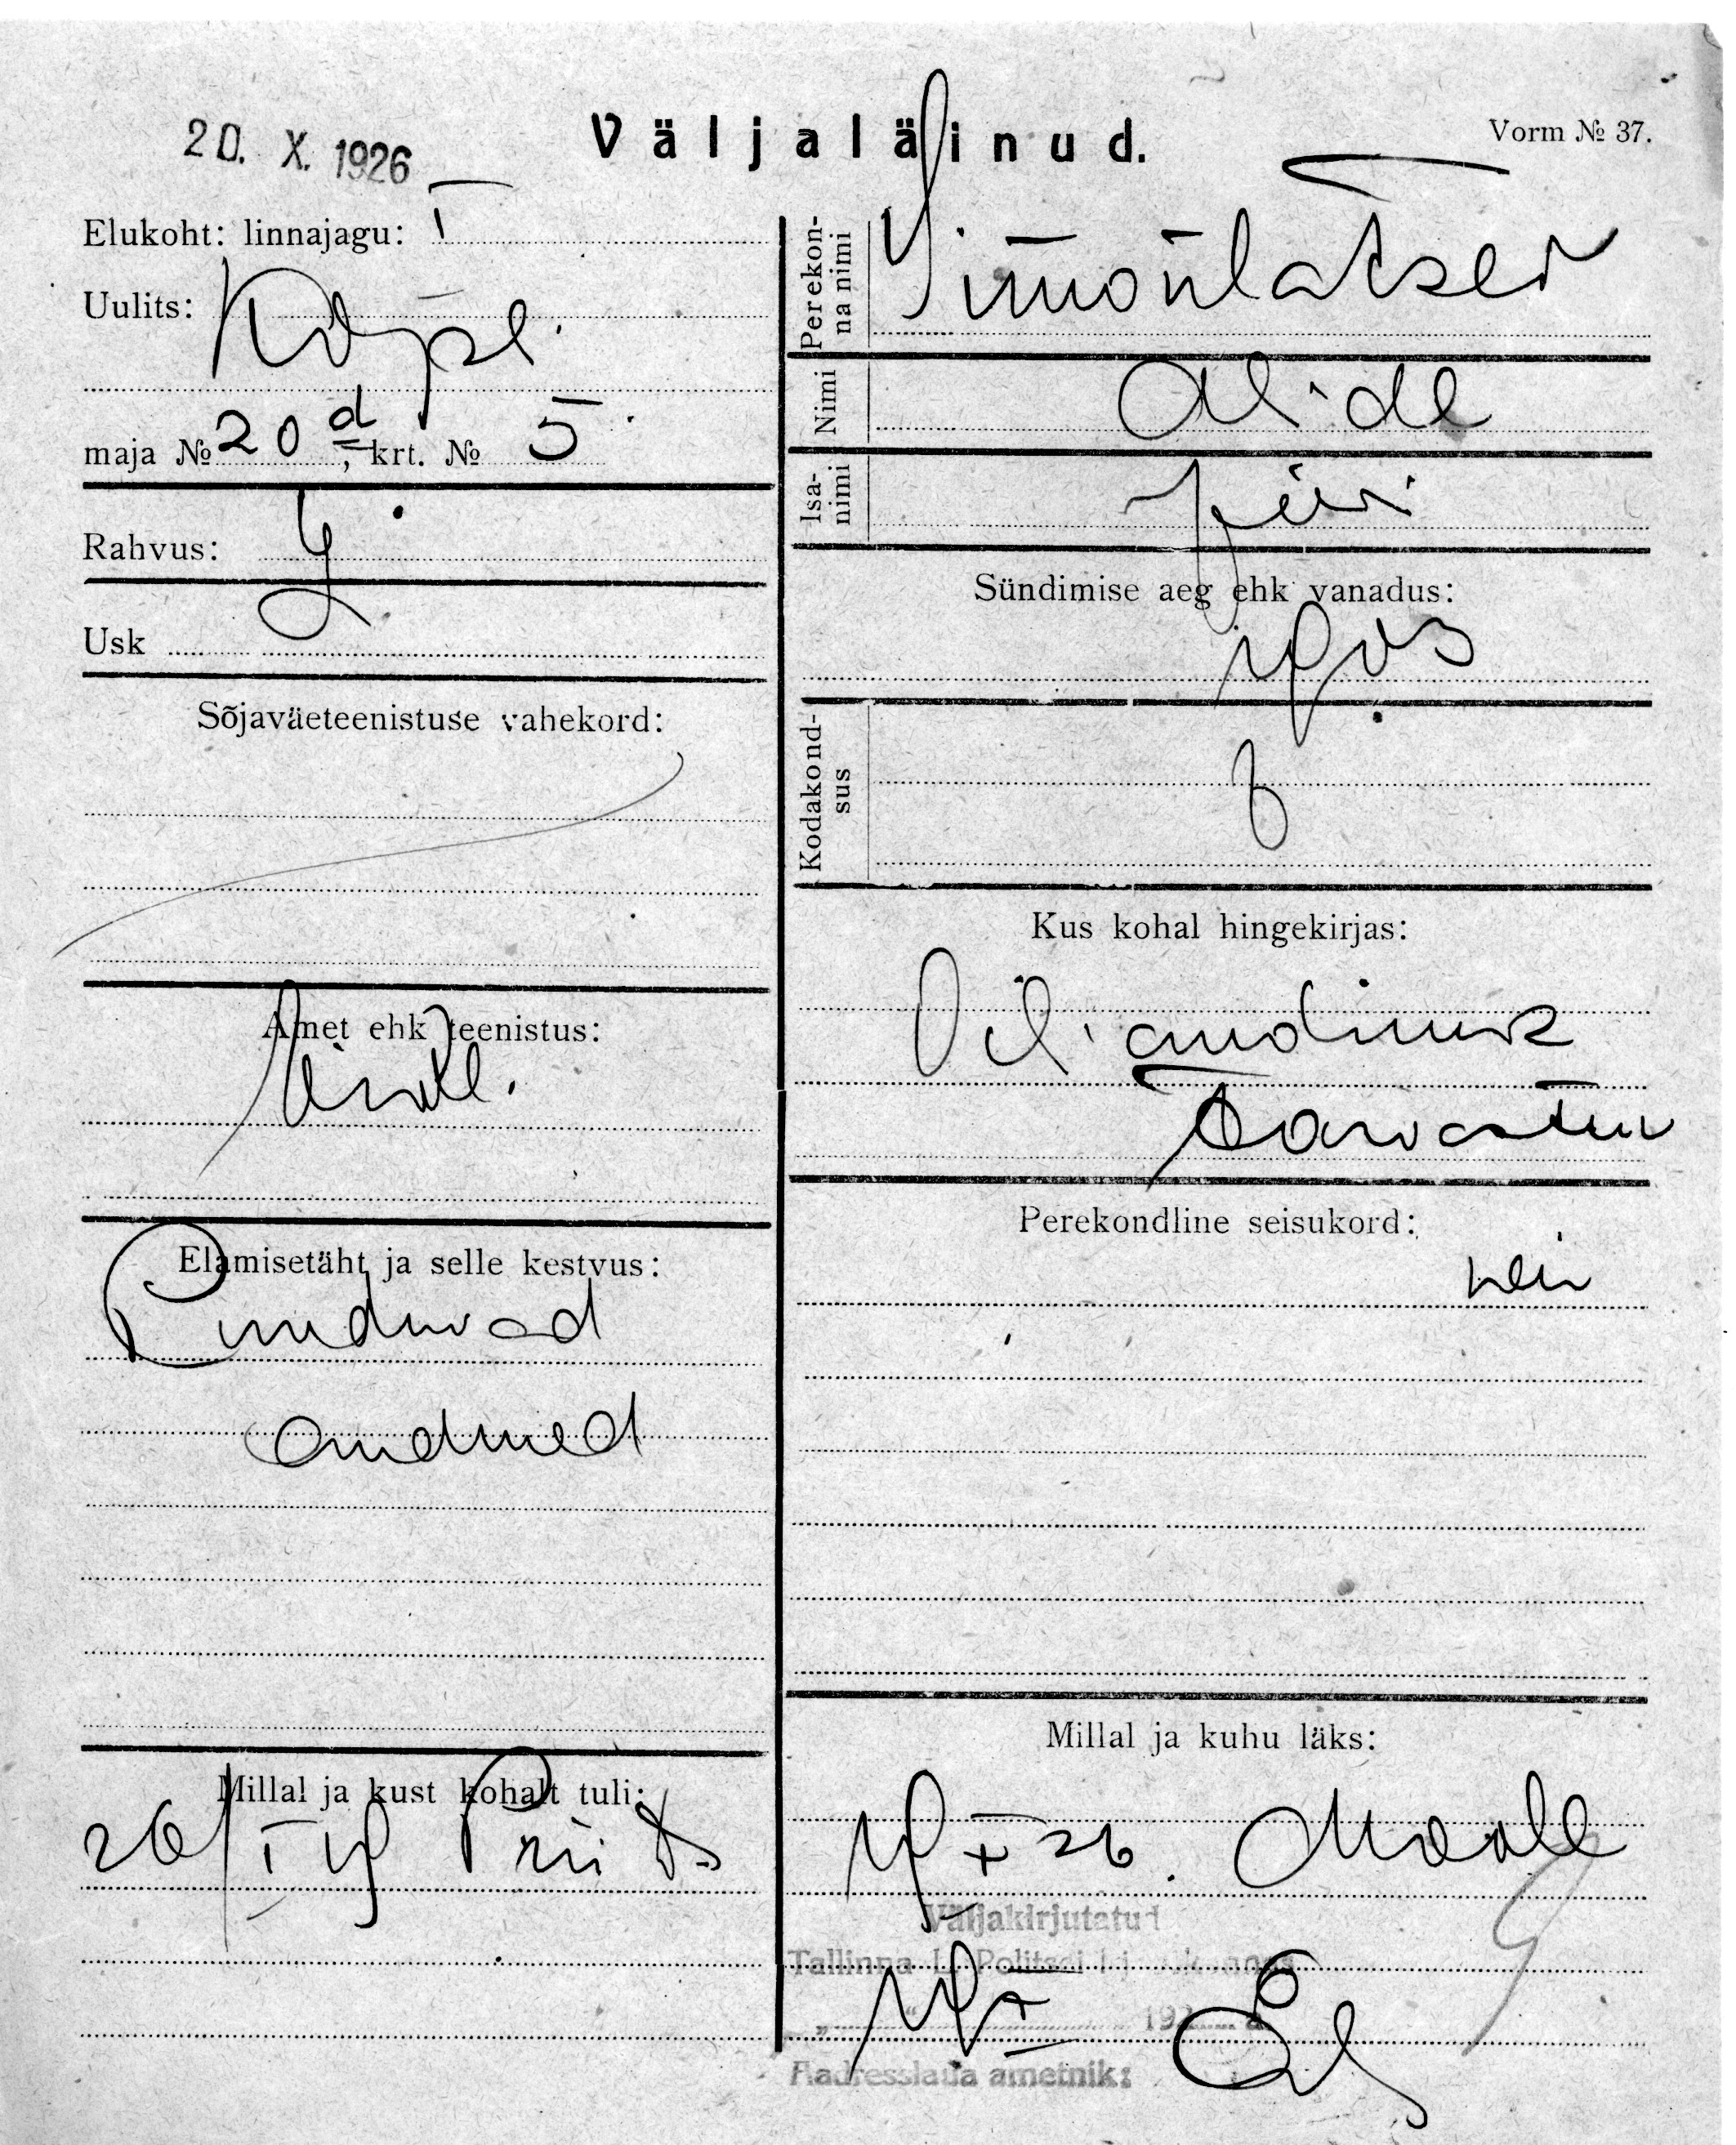 20. X. 1926
Väljaläinud.
Vorm № 37.
Elukoht: linnajagu: I
Uulits: Köpl.
maja № 20 d, krt. № 5
Rahvus:
Usk
Sõjaväeteenistuse vahekord:
Amet ehk teenistus:
Elamisetäht ja selle kestvus:
Puuduvad
andmed
Millal ja kust kohalt tuli:
26/I
Perekonna nimi Simonlatser
Nimi Alide
Isanimi Jüri
Sündimise aeg ehk vanadus:
1903
Kodakondsus
Kus kohal hingekirjas:
Viljandimk
Tarvastu
Perekondline seisukord:
Millal ja kuhu läks:
19 X 26. Maale
Väljakirjutatud
Tallinna L. Politsei
192 a.
Aadresslaua ametnik: